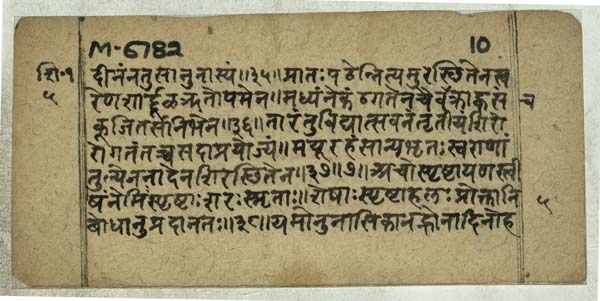 M-6782 10
शि॰१ ५
दीनंनतुसानुनास्यं॥३५॥प्रातःपठेन्नित्यमुरस्थितेनस्व
रेणशार्दूलरुतोपमेन॥मध्यंनेकंठगतेनचैवचक्रोक्वसं च
कूजितसंनिभेन॥३६॥तारंतुविद्यात्सवनंतृतीयंशिरो
रोगतंतच्चसदाप्रयोज्यं॥मयूरहंसान्यभृतःस्वराणां
तुल्येननादेनशिरस्थितेन॥३७॥७॥अचोस्पृष्टायणस्त्वी
षंनेमिस्पृष्टाःशरःस्मृताः॥शेषाःस्पृष्टाहलःप्रोक्तानि
बोधानुप्रदानतः॥३८॥यमोनुनासिकानह्रौनादिनोह
५